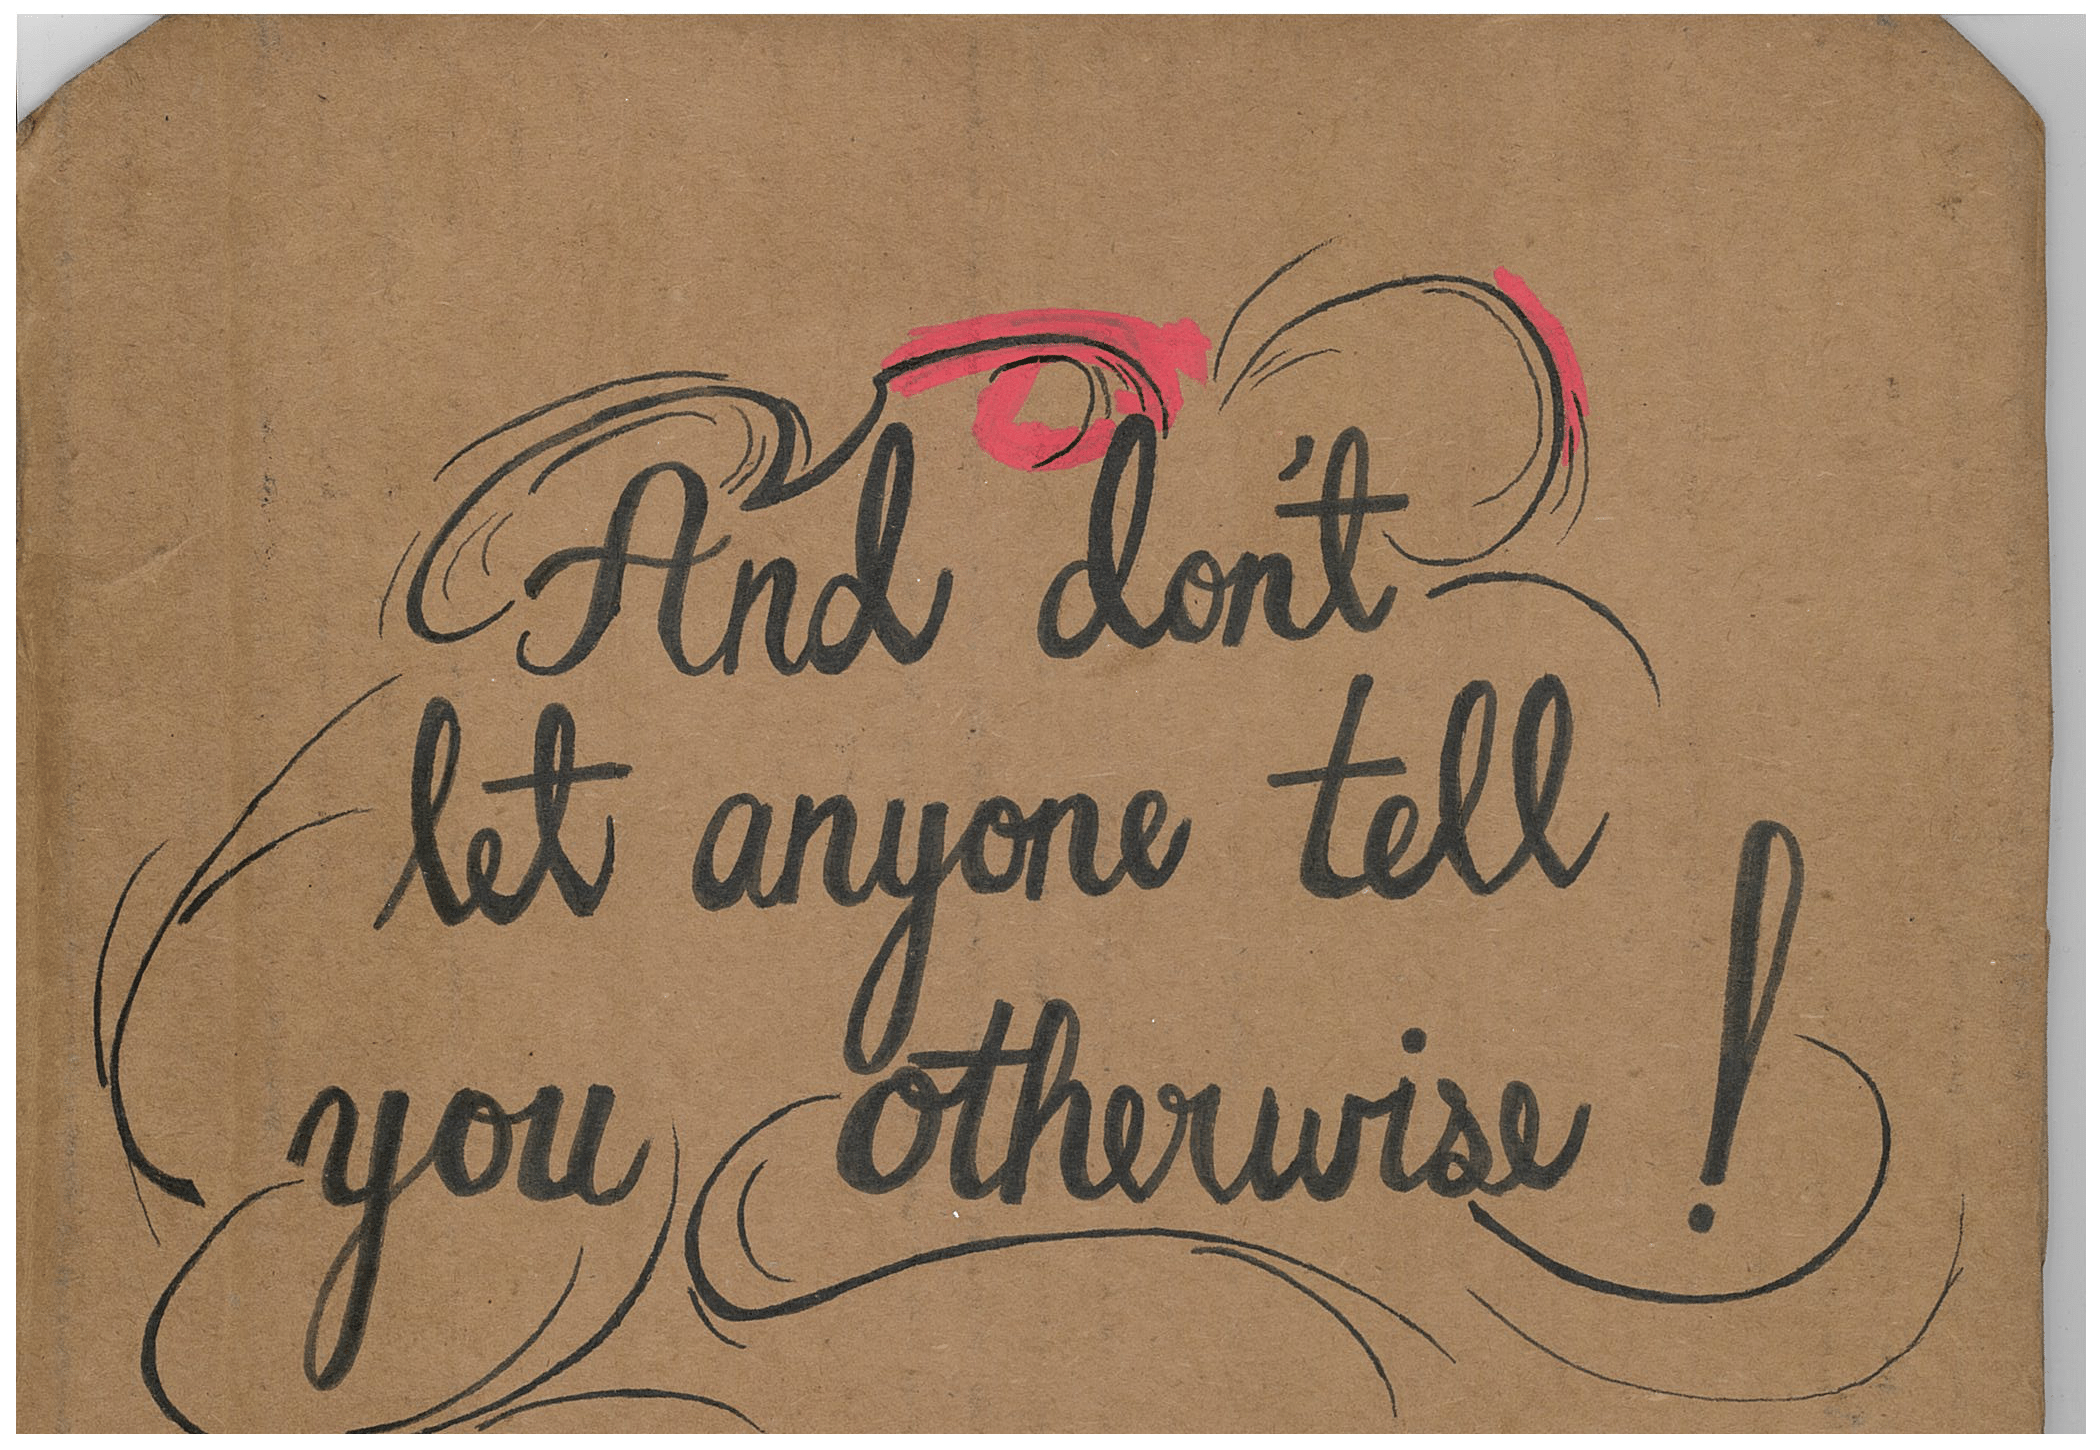 And don't
let anyone tell
you otherwise!